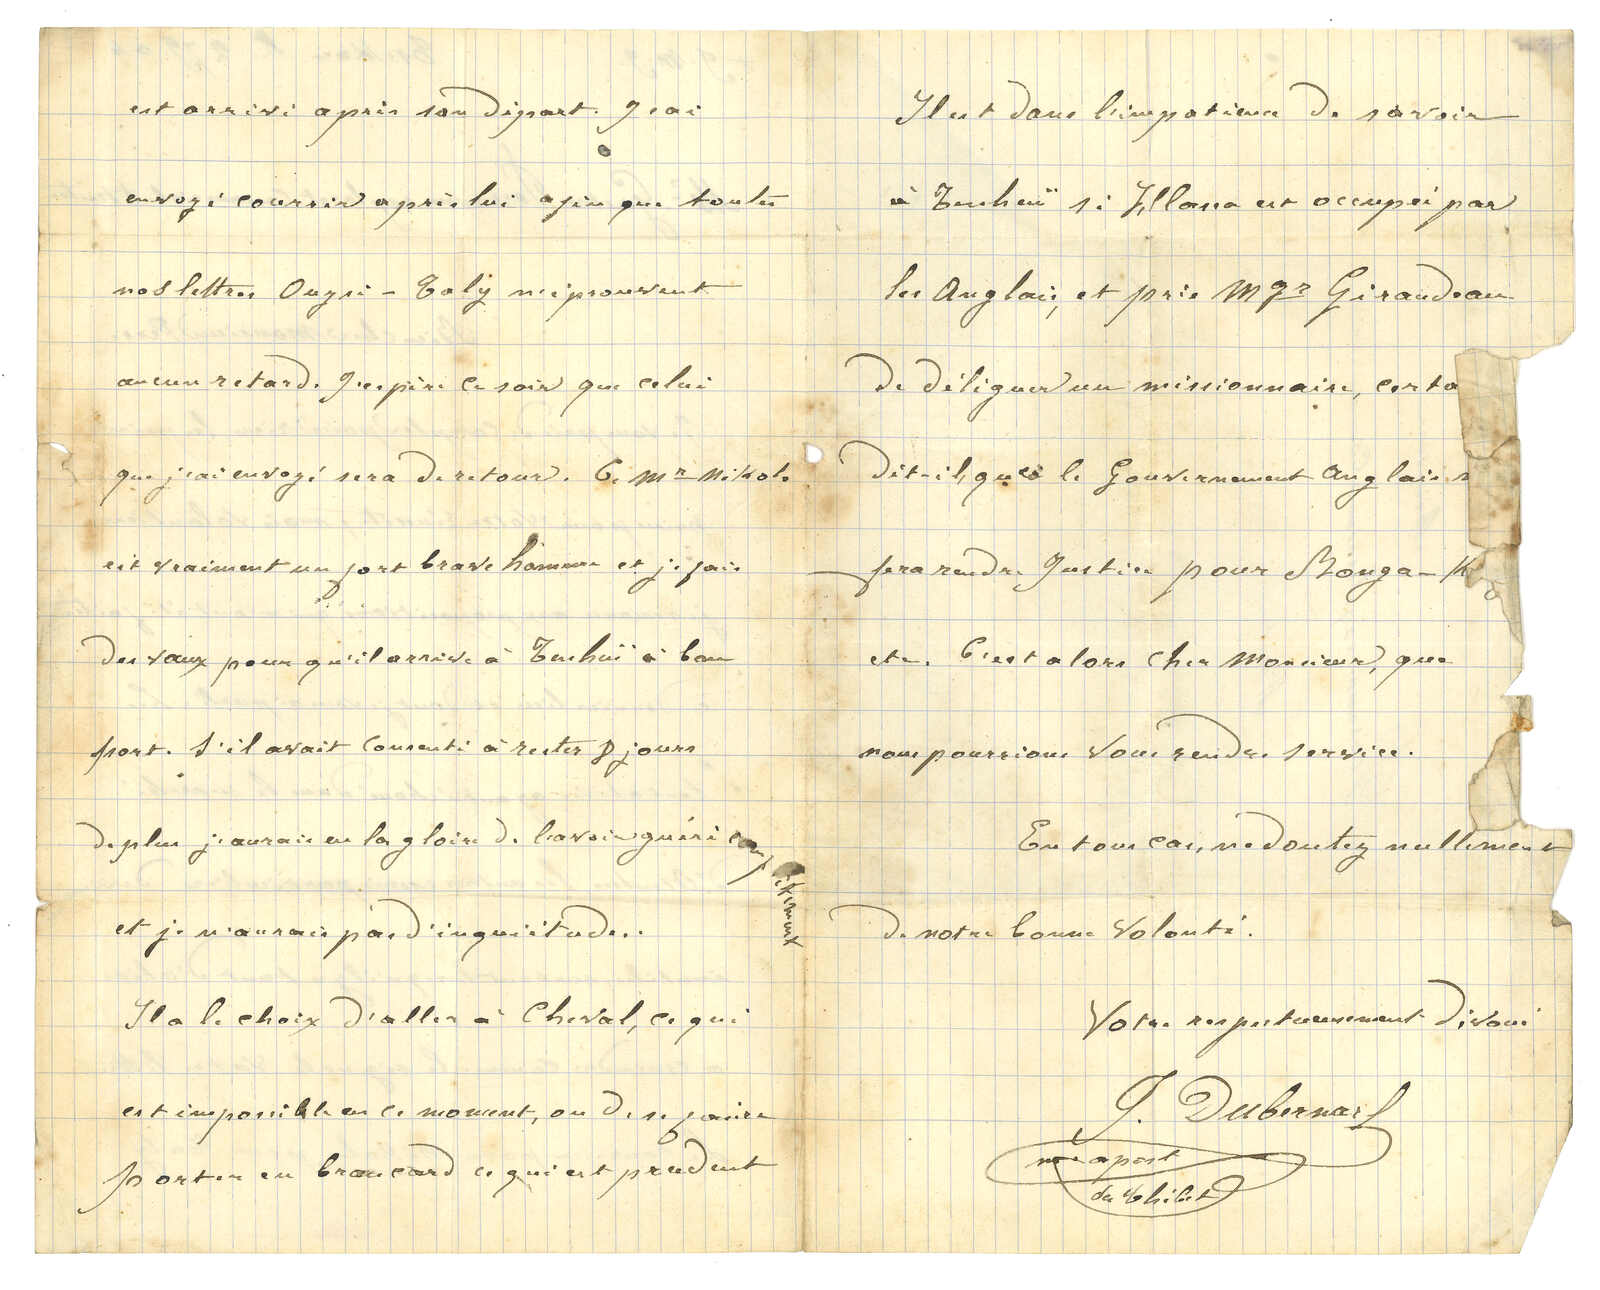 est arrivé après son départ. J'ai
envoyé courrir après lui afin que toutes
nos lettres Ouysi - Taly n'éprouvent
aucun retard. J'espère ce soir que celui
que j'ai envoyé sera de retour. Ce Mr Nikols
est vraiment un fort brave homme et je fais
des vœux pour qu'il arrive à Tsekou à bon
port. S'il avait consenti à rester 8 jours
de plus j'aurais eu la gloire de l'avoir guéri complètement
et je n'aurais pas d'inquiétudes.
Il a le choix d'aller à Cheval, ce qui
est impossible en ce moment, ou de se faire
porter en brancard ce qui est prudent
Il est dans l'impatience de savoir
à si Hlassa est occupée par
les Anglais, et prie Mgr Giraudeau
de déléguer un missionnaire, certa
dit-il, que le Gouvernement Anglais
fera rendre Justice pour Bonga - K
etc. C'est alors Cher Monsieur, que
nous pourrions vous rendre service.
En tous cas, ne doutez nullement
de notre bonne volonté.
Votre respectueusement dévoué
J. Dubernard
miss apost
du Thibet